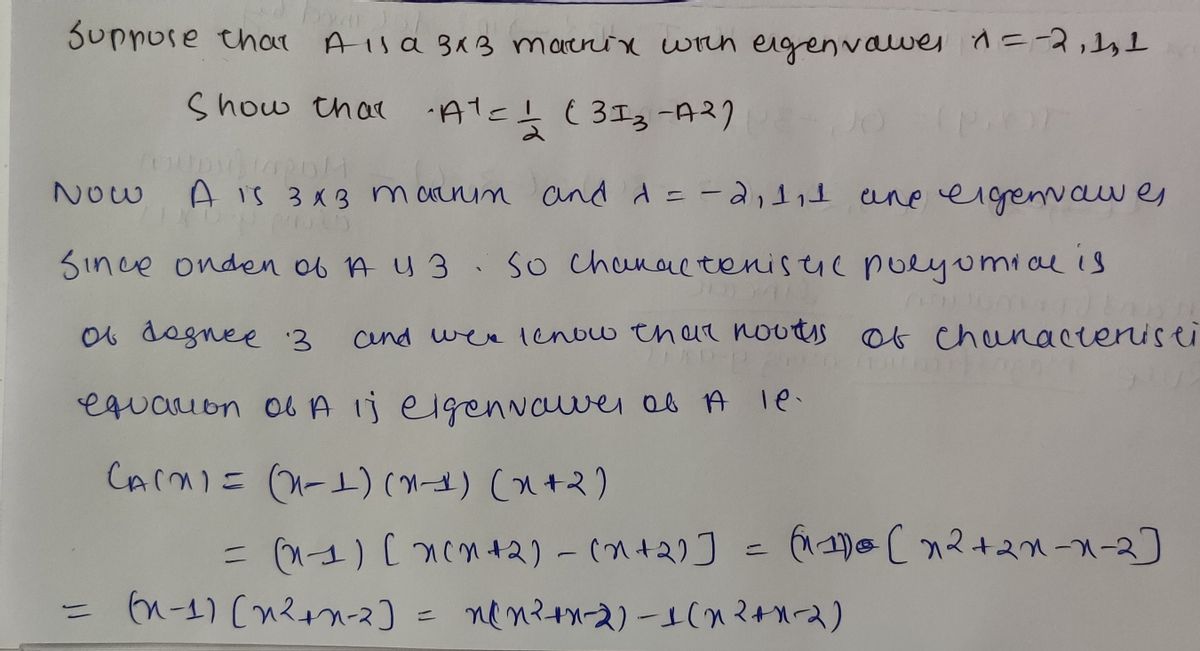 Suppose that A is a 3x3 matrix with eigenvalues λ = -2, 1, 1
Show that A⁻¹ = 1/2 (3I₃ - A²)
Now A is 3x3 matrix and λ = -2, 1, 1 are eigenvalues
Since order of A is 3. So characteristic polyomial is
of degree 3 and we know that roots of characteristi
equation of A is eigenvalues of A ie.
C_A(x) = (x-1) (x-1) (x+2)
= (x-1) [x(x+2) - (x+2)] = (x-1) [x²+2x-x-2]
= (x-1) [x²+x-2] = x(x²+x-2) - 1(x²+x-2)